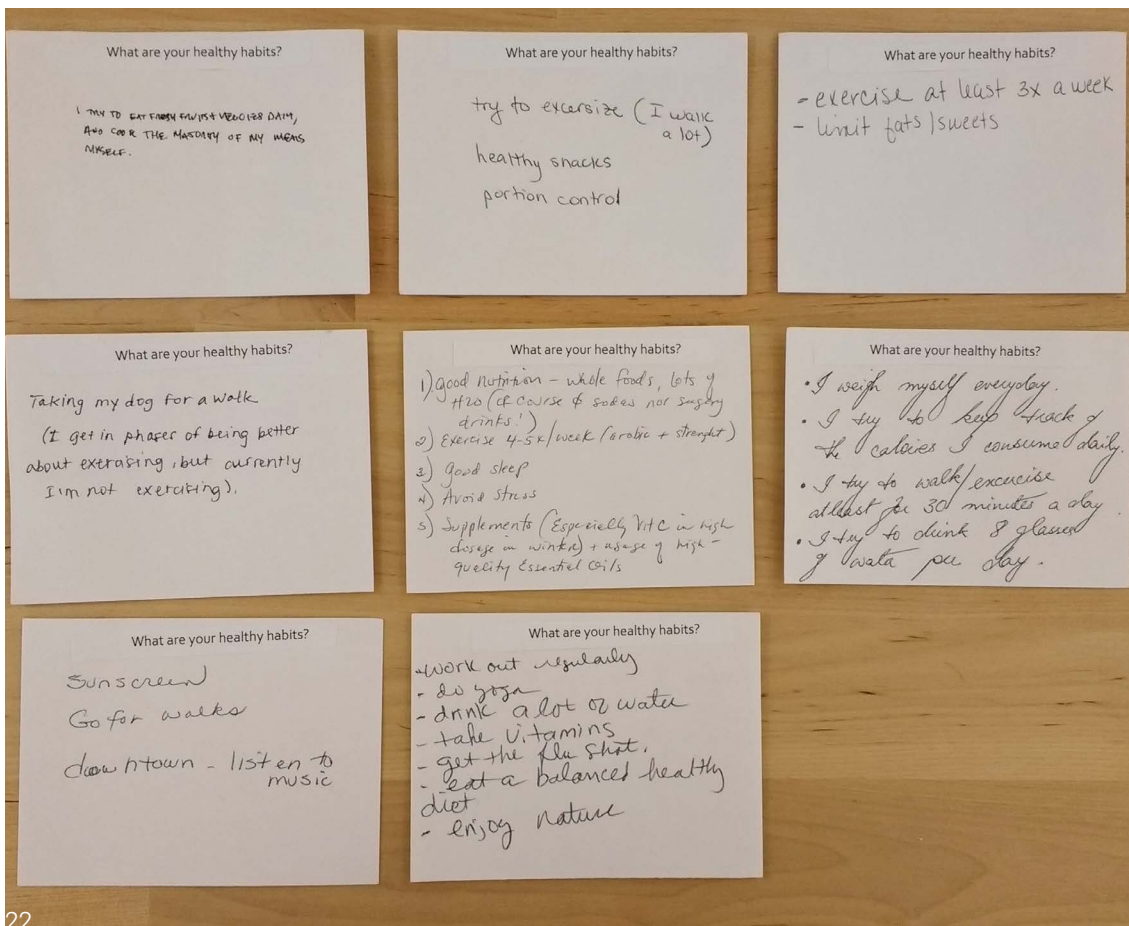 What are your healthy habits?
I TRY TO EAT FRESH FRUIT + VEGGIES DAILY,
AND COOK THE MAJORITY OF MY MEALS
MYSELF.
What are your healthy habits?
try to excersize (I walk
a lot)
healthy snacks
portion control
What are your healthy habits?
- exercise at least 3x a week
- limit fats/sweets
What are your healthy habits?
Taking my dog for a walk
(I get in phases of being better
about exercising, but currently
I'm not exercising).
What are your healthy habits?
1) good nutrition - whole foods, lots of
H20 (of course sodas nor sugary
drinks!)
2) Exercise 4-5x/week (arobic + strenght)
3) Good sleep
4) Avoid stress
5) Supplements (Especially Vit C in high
dosage in winter) + usage of high-
quality Essential Oils
What are your healthy habits?
• I weigh myself everyday.
• I try to keep track of
the calories I consume daily.
• I try to walk/excercise
atleast for 30 minutes a day.
• I try to drink 8 glasses
of water per day.
What are your healthy habits?
Sunscreen
Go for walks
downtown - listen to
music
What are your healthy habits?
- work out regularly
- do yoga
- drink a lot of water
- take vitamins
- get the flu shot.
- eat a balanced healthy
diet
- enjoy nature
22